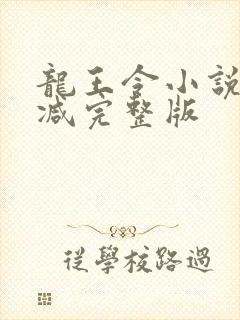 龍王令小説
减完整版
從學校路過